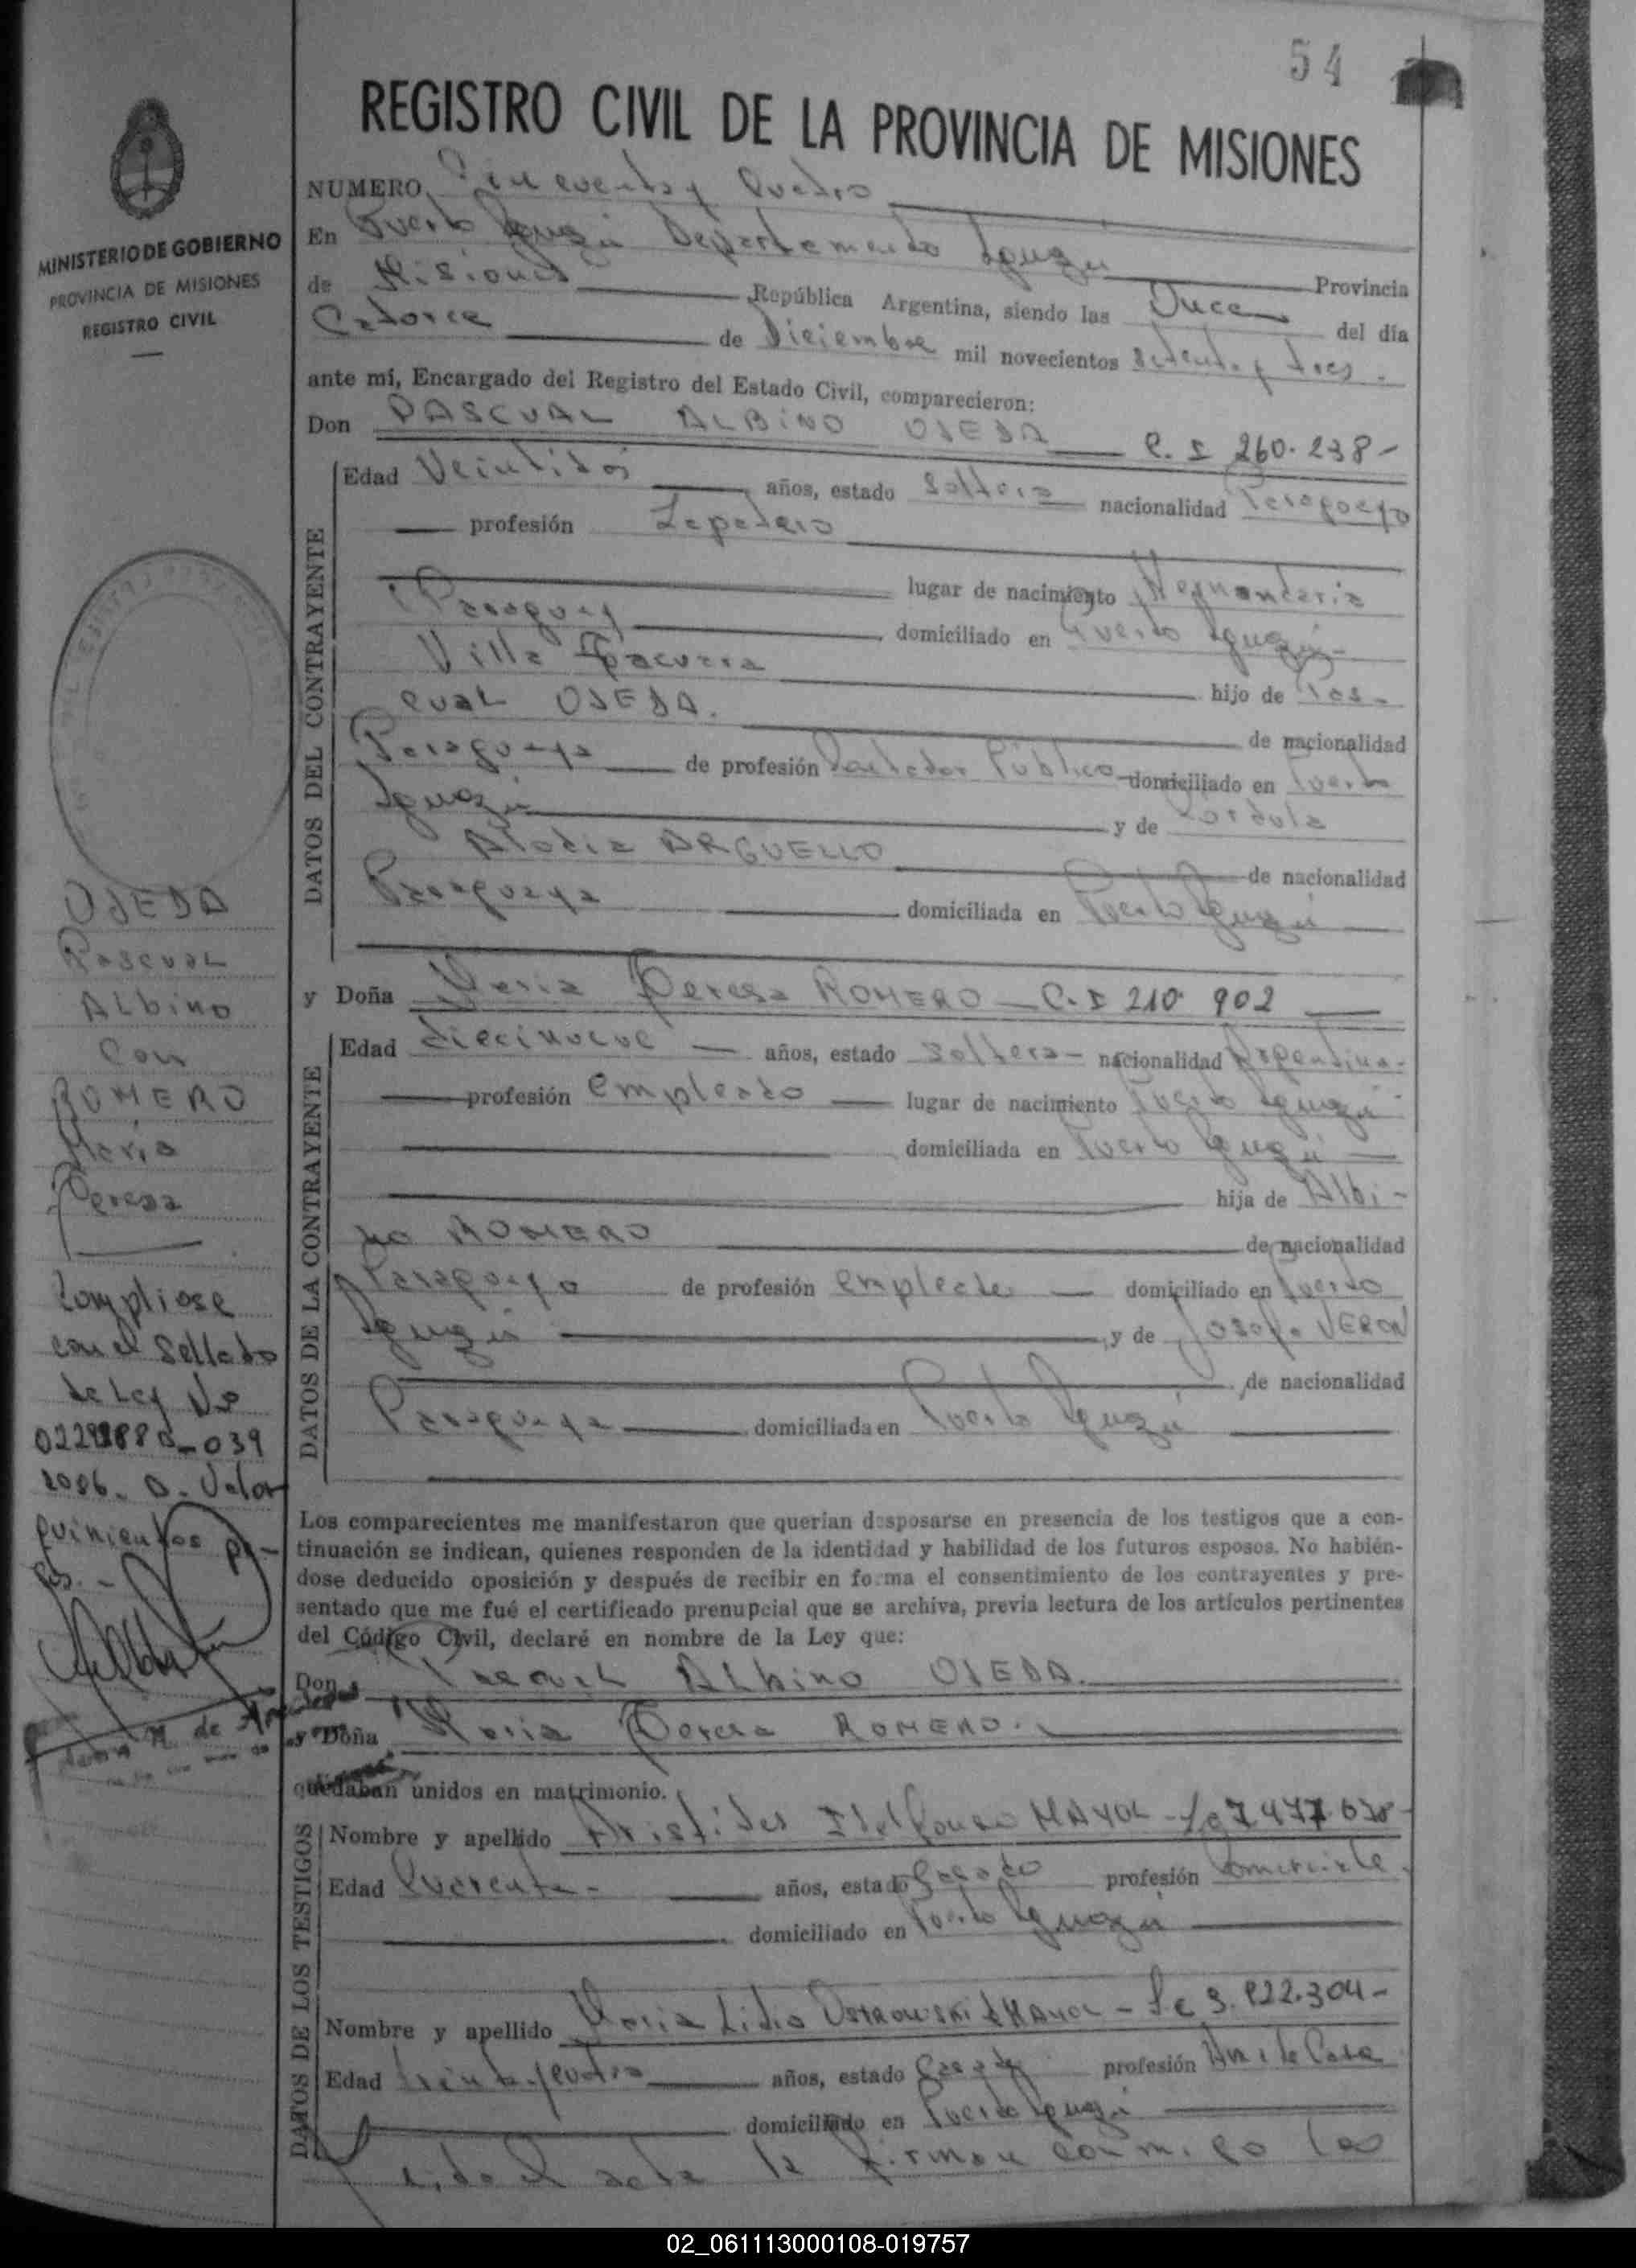 54
REGISTRO CIVIL DE LA PROVINCIA DE MISIONES
MINISTERIO DE GOBIERNO
PROVINCIA DE MISIONES
REGISTRO CIVIL
NUMERO Cincuenta y Cuatro
En Puerto Iguazú Departamento Iguazú Provincia
de Misiones República Argentina, siendo las Once del día
Catorce de Diciembre mil novecientos Setenta y tres.
ante mí, Encargado del Registro del Estado Civil, comparecieron:
Don PASCUAL ALBINO OJEDA C. I 260.238-
DATOS DEL CONTRAYENTE
Edad Veintidos años, estado Soltero nacionalidad Paraguayo
profesión Zapatero
lugar de nacimiento Hernandaria
Paraguay domiciliado en Puerto Iguazú-
Villa hijo de Pas-
cual OJEDA. de nacionalidad
Paraguaya de profesión Contador Público domiciliado en Puerto
Iguazú y de Cordula
Alodia ARGUELLO de nacionalidad
Paraguaya domiciliada en Puerto Iguazú
y Doña Maria Teresa ROMERO - C. I 210 902
DATOS DE LA CONTRAYENTE
Edad diecinueve años, estado soltera- nacionalidad Argentina-
profesión empleada lugar de nacimiento Puerto Iguazú
domiciliada en Puerto Iguazú
hija de Albi-
no ROMERO de nacionalidad
Paraguayo de profesión empleado domiciliado en Puerto
Iguazú y de Josefa VERON
de nacionalidad
Paraguaya domiciliada en Puerto Iguazú
OJEDA
Pascual
Albino
Con
ROMERO
Maria
Teresa
Compliose
con el Sellado
de Ley No
039
2086. D. Valor
quinientos
ps.-
Los comparecientes me manifestaron que querían desposarse en presencia de los testigos que a con-
tinuación se indican, quienes responden de la identidad y habilidad de los futuros esposos. No habién-
dose deducido oposición y después de recibir en forma el consentimiento de los contrayentes y pre-
sentado que me fué el certificado prenupcial que se archiva, previa lectura de los artículos pertinentes
del Código Civil, declaré en nombre de la Ley que:
Don Pascual Albino OJEDA.
y Doña Maria Teresa ROMERO.
quedaban unidos en matrimonio.
DATOS DE LOS TESTIGOS
Nombre y apellido Aristides Idelfonso MAYOL - 7 477.638-
Edad Cuarenta- años, estado Casado profesión Comerciante
domiciliado en Puerto Iguazú
Nombre y apellido Maria Lidia OSTROWSKI de MAYOL - 922.304-
Edad treinta y cuatro años, estado Casada profesión Ama de Casa
domiciliado en Puerto Iguazú
Leida el acta la firman conmigo los
02_061113000108-019757